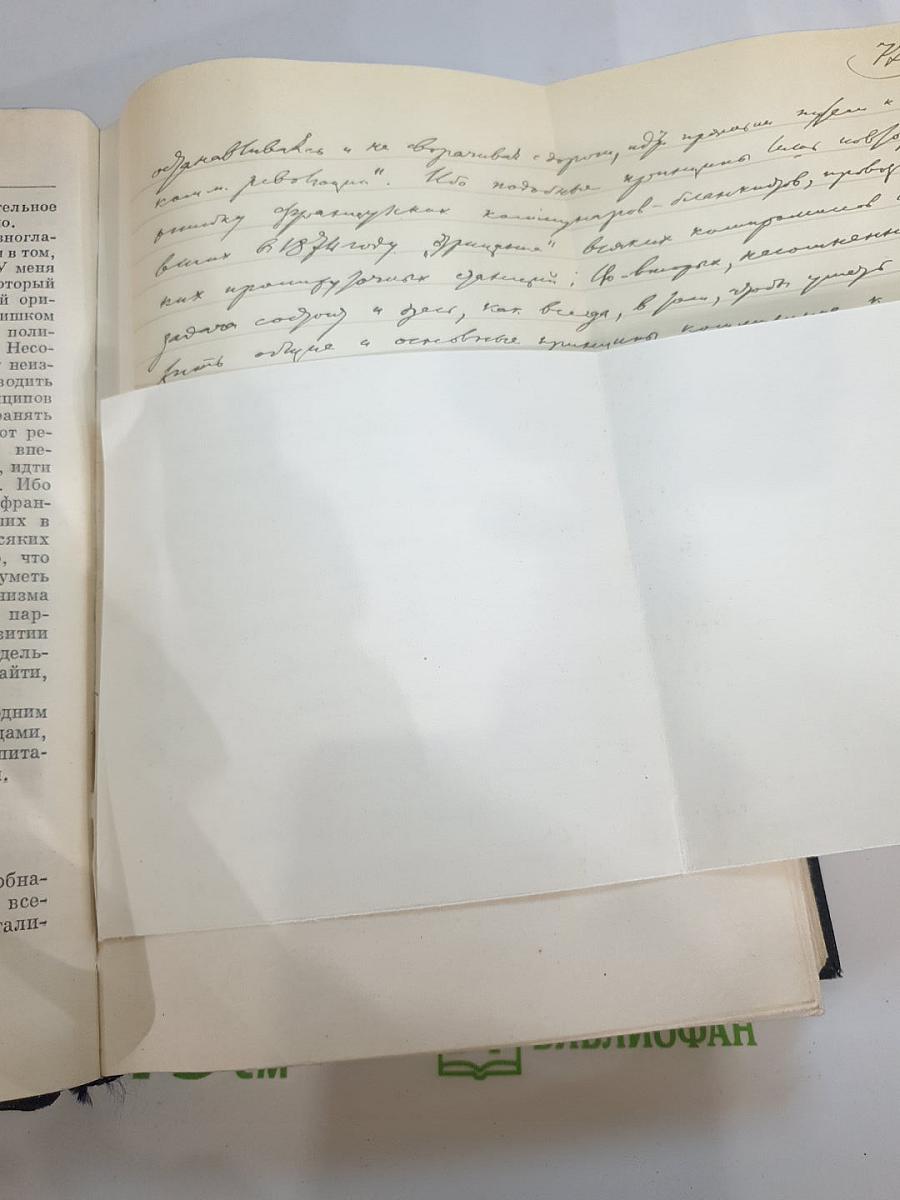 тельное
о.
зногла-
я в том,
У меня
оторый
й ори-
ишком
поли-
Несо-
неиз-
водить
ципов
ранять
от ре-
впе-
, идти
. Ибо
фран-
их в
сяких
, что
уметь
низма
пар-
витии
дель-
айти,
одним
цами,
пита-
обна-
все-
тали-
останавливаясь и не сворачивая с дороги, идти прямым путем к
комм. революции". Ибо подобные принципы лишь
ошибку французских коммунаров-бланкистов,
вших в 1874 году "отрицание" всяких компромиссов и
ких промежуточных станций; Во-вторых, несомненно
задача состоит и здесь, как всегда, в том, чтобы уметь
вить общие и основные принципы коммунизма к
см
БИБЛИОФАН